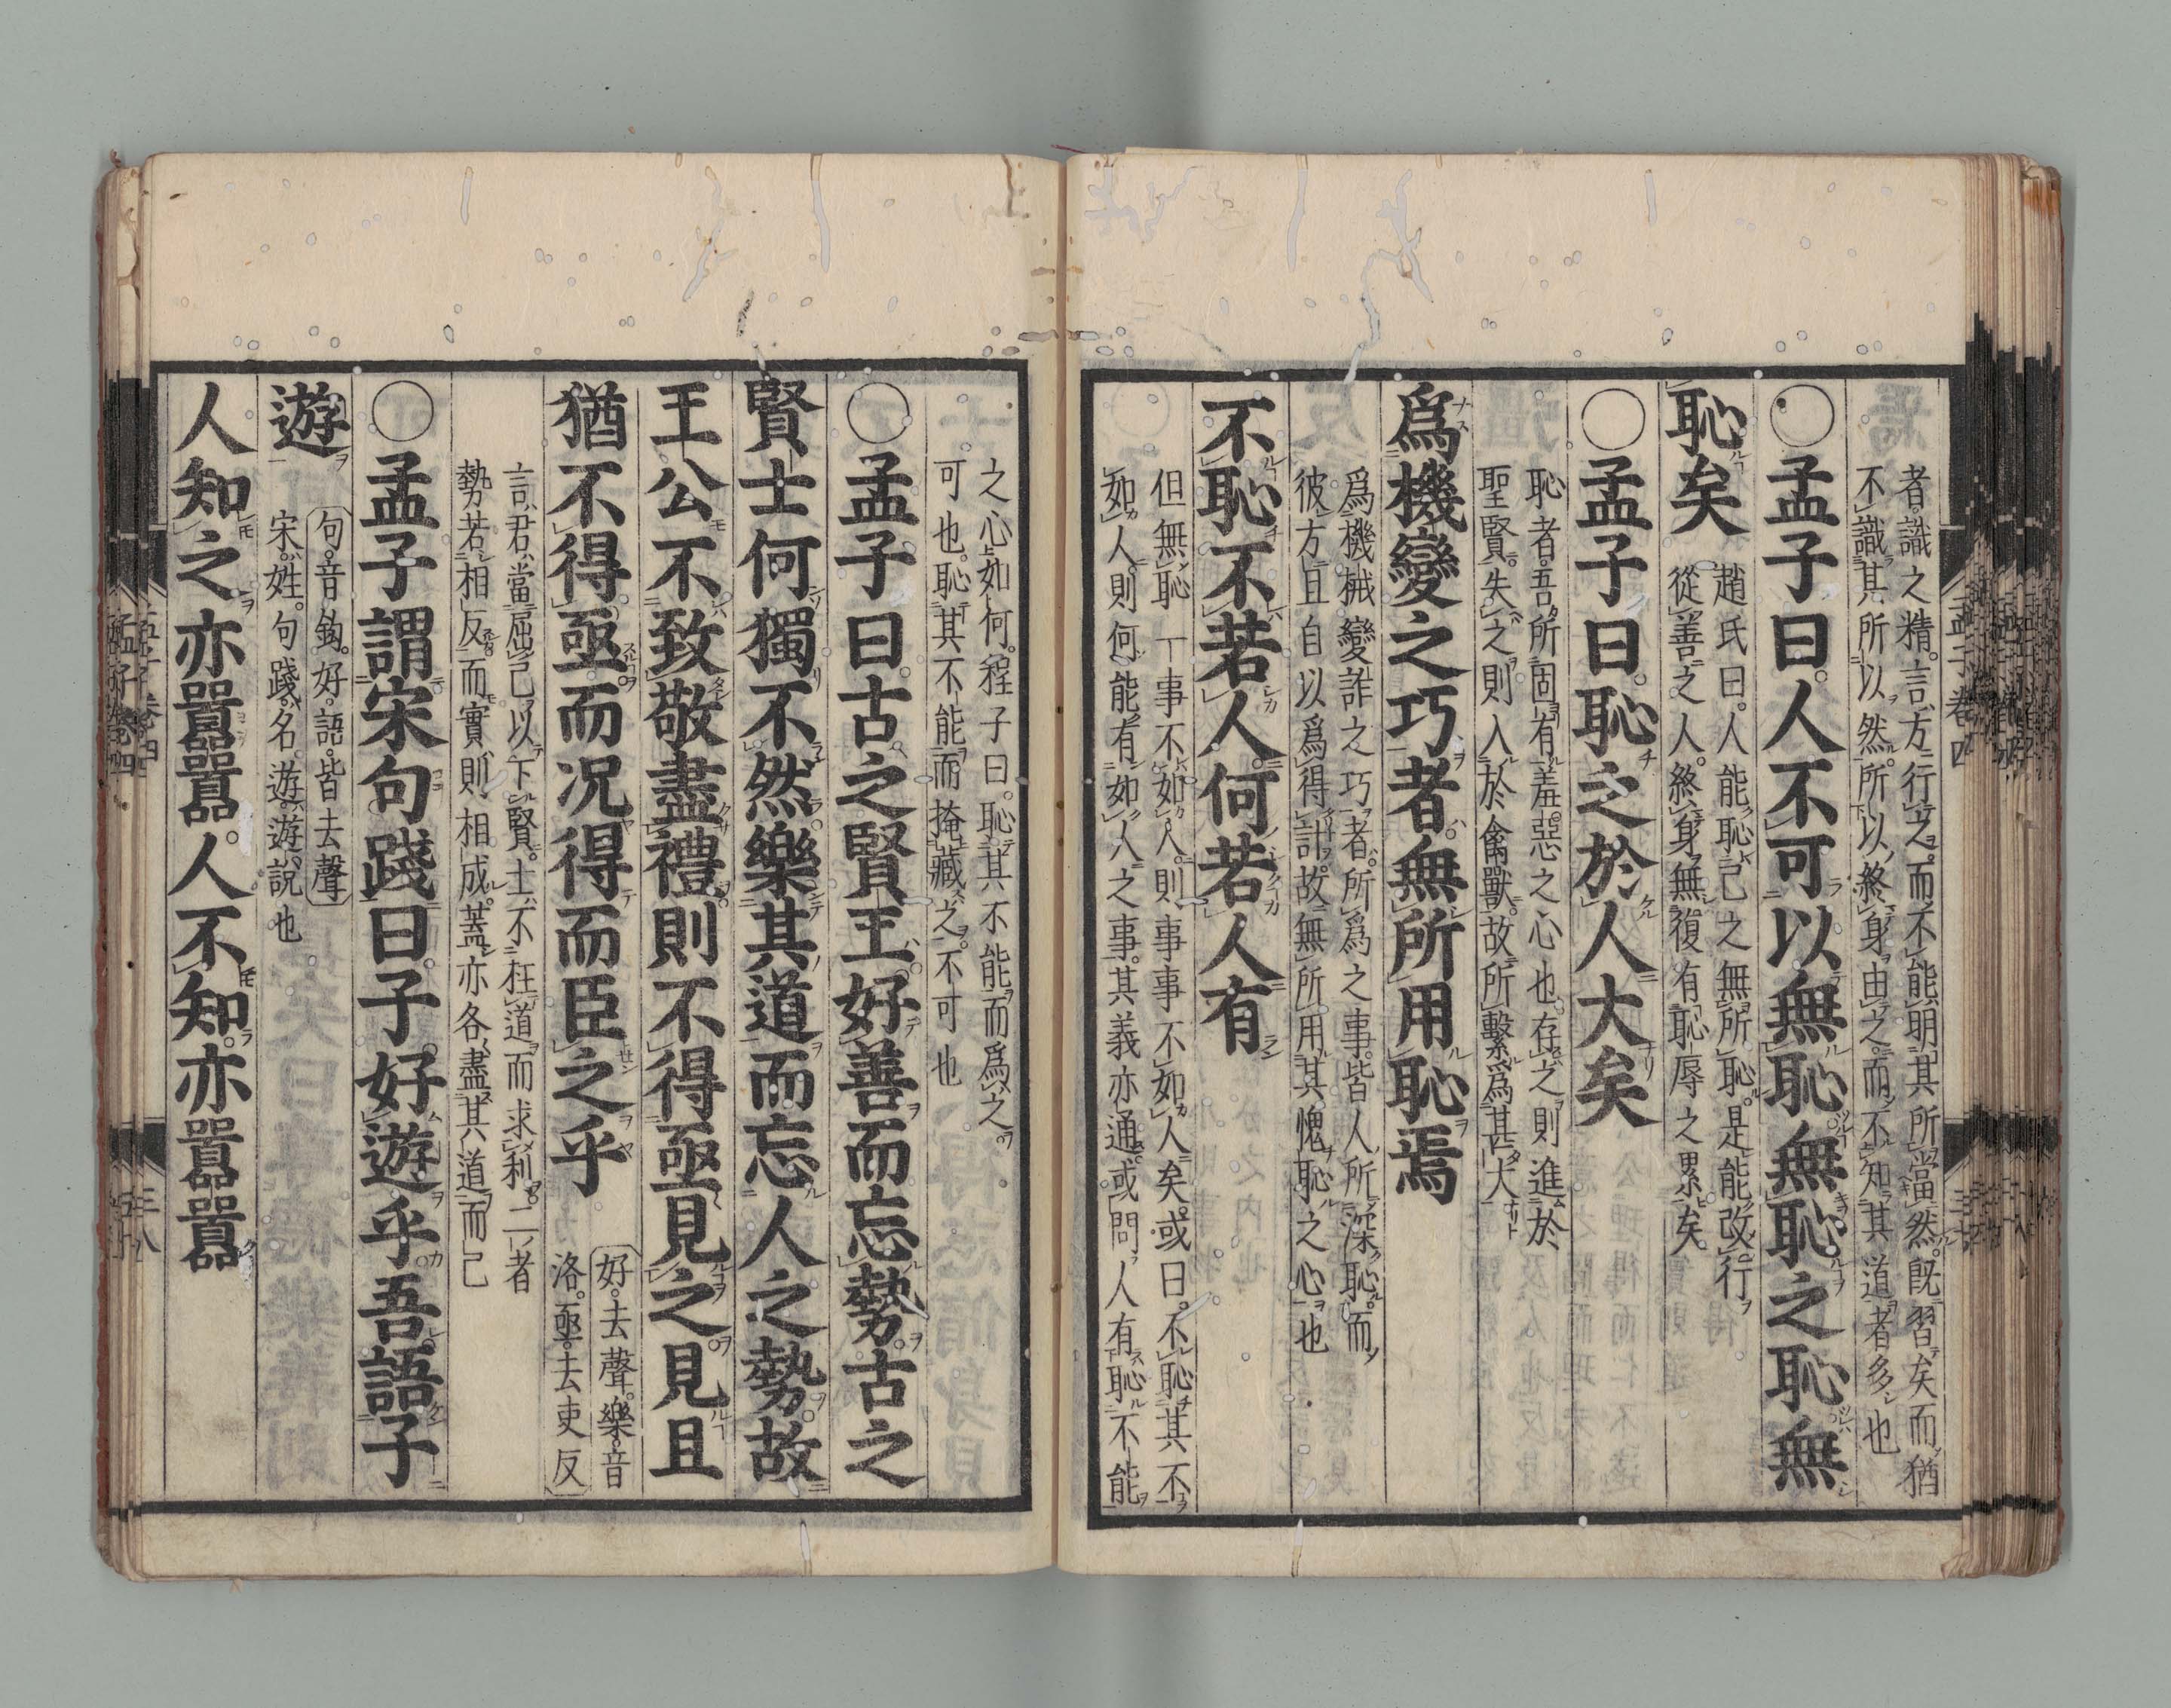 者識之精言方行之而不能明其所當然既習矣而猶
不識其所以然所以終身由之而不知其道者多也
○孟子曰人不可以無恥無恥之恥無
恥矣
趙氏曰人能恥己之無所恥是能改行
從善之人終身無復有恥辱之累矣
○孟子曰恥之於人大矣
恥者吾所固有羞惡之心也存之則進於
聖賢失之則入於禽獸故所繫爲甚大
爲機變之巧者無所用恥焉
爲機械變詐之巧者所爲之事皆人所深恥而
彼方且自以爲得計故無所用其愧恥之心也
不恥不若人何若人有
但無恥一事不如人則事事不如人矣或曰不恥其不
如人則何能有如人之事其義亦通或問人有恥不能
之心如何程子曰恥其不能而爲之
可也恥其不能而掩藏之不可也
○孟子曰古之賢王好善而忘勢古之
賢士何獨不然樂其道而忘人之勢故
王公不致敬盡禮則不得亟見之見且
猶不得亟而况得而臣之乎
好去聲樂音
洛亟去吏反
言君當屈己以下賢士不枉道而求利二者
勢若相反而實則相成蓋亦各盡其道而已
○孟子謂宋句踐曰子好遊乎吾語子
遊
句音鉤好語皆去聲
宋姓句踐名遊遊說也
人知之亦囂囂人不知亦囂囂
孟子卷四